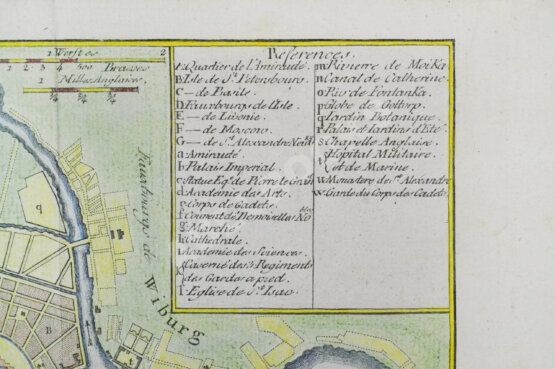 1 Werstes 2
Brasses
1 2 3 4 5 6
1 Milles Anglaises
¼ ½ ¾
References.
A Quartier de L'Amirauté
B Isle de St. Petersbourg
C — de Basils
D Fauxbourgs de l'Isle
E — de Livonie
F — de Moscou
G — de St. Alexandre
a Amirauté
b Palais Imperial
c Statue Eq. de Pierre le Grand
d Academie des Arts
e Corps de Cadets
f Couvent des Demoiselles Nobles
g Marché
h Cathedrale
i Academie des Sciences
k Caserne des 3 Regiments
des Gardes à pied
l Eglise de St. Isac
m Rivierre de Moika
n Canal de Catherine
o Riv. de Fontanka
p Globe de Gottorp
q Jardin Botanique
r Palais et Jardins d'Eté
s Chapelle Anglaise
t Hopital Militaire
et de Marine
w Monastere de St. Alexandre
Garde du Corps des Cadets
Fauxbourgs de
Wiburg
q
B
t